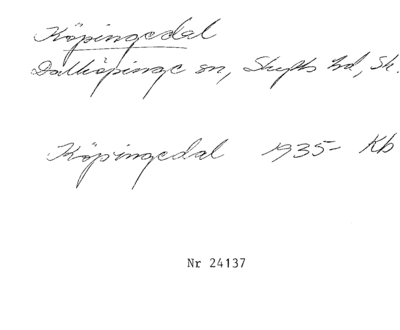 Köpingedal
Dalköpinge sn, Skytts hd, Sk.
Köpingedal 1935- Kb
Nr 24137